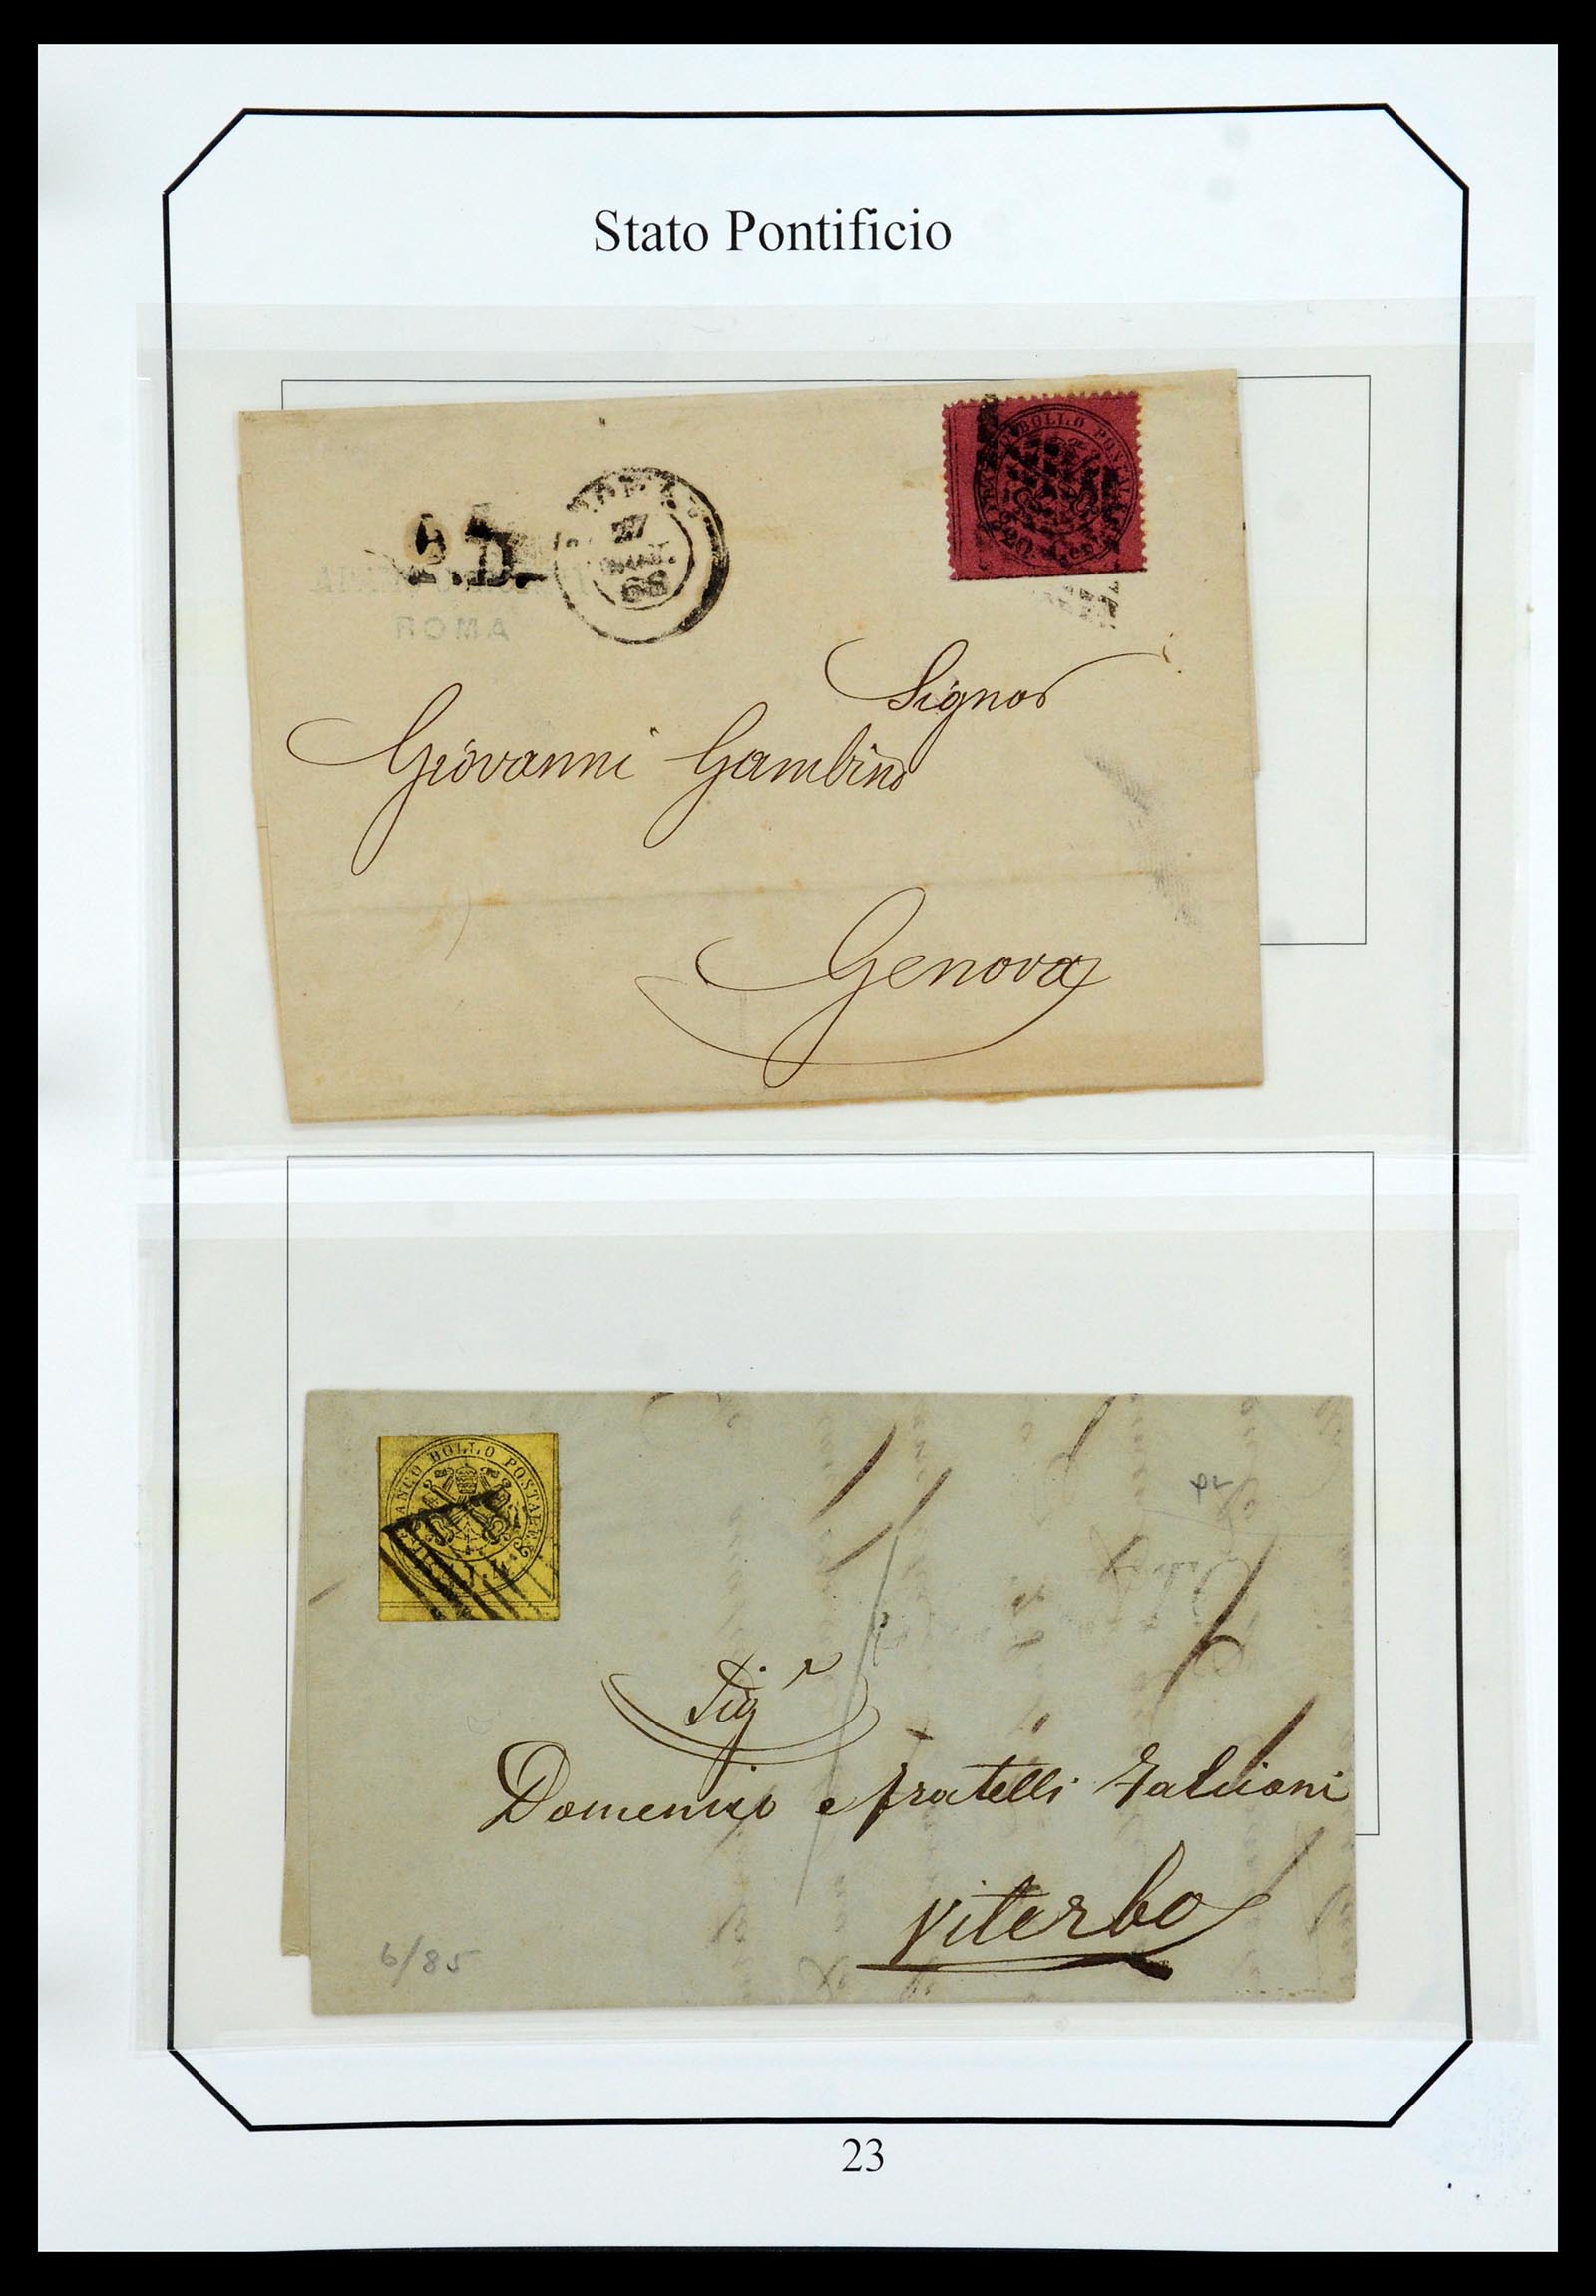 Stato Pontificio
BOLLO POSTALE
20 Cent
P.D.
ROMA
27
68
ROMA
Signor
Giovanni Gambino
Genova
FRANCO BOLLO POSTALE
Sigr
Domenico e fratelli Falcioni
Viterbo
6/85
23